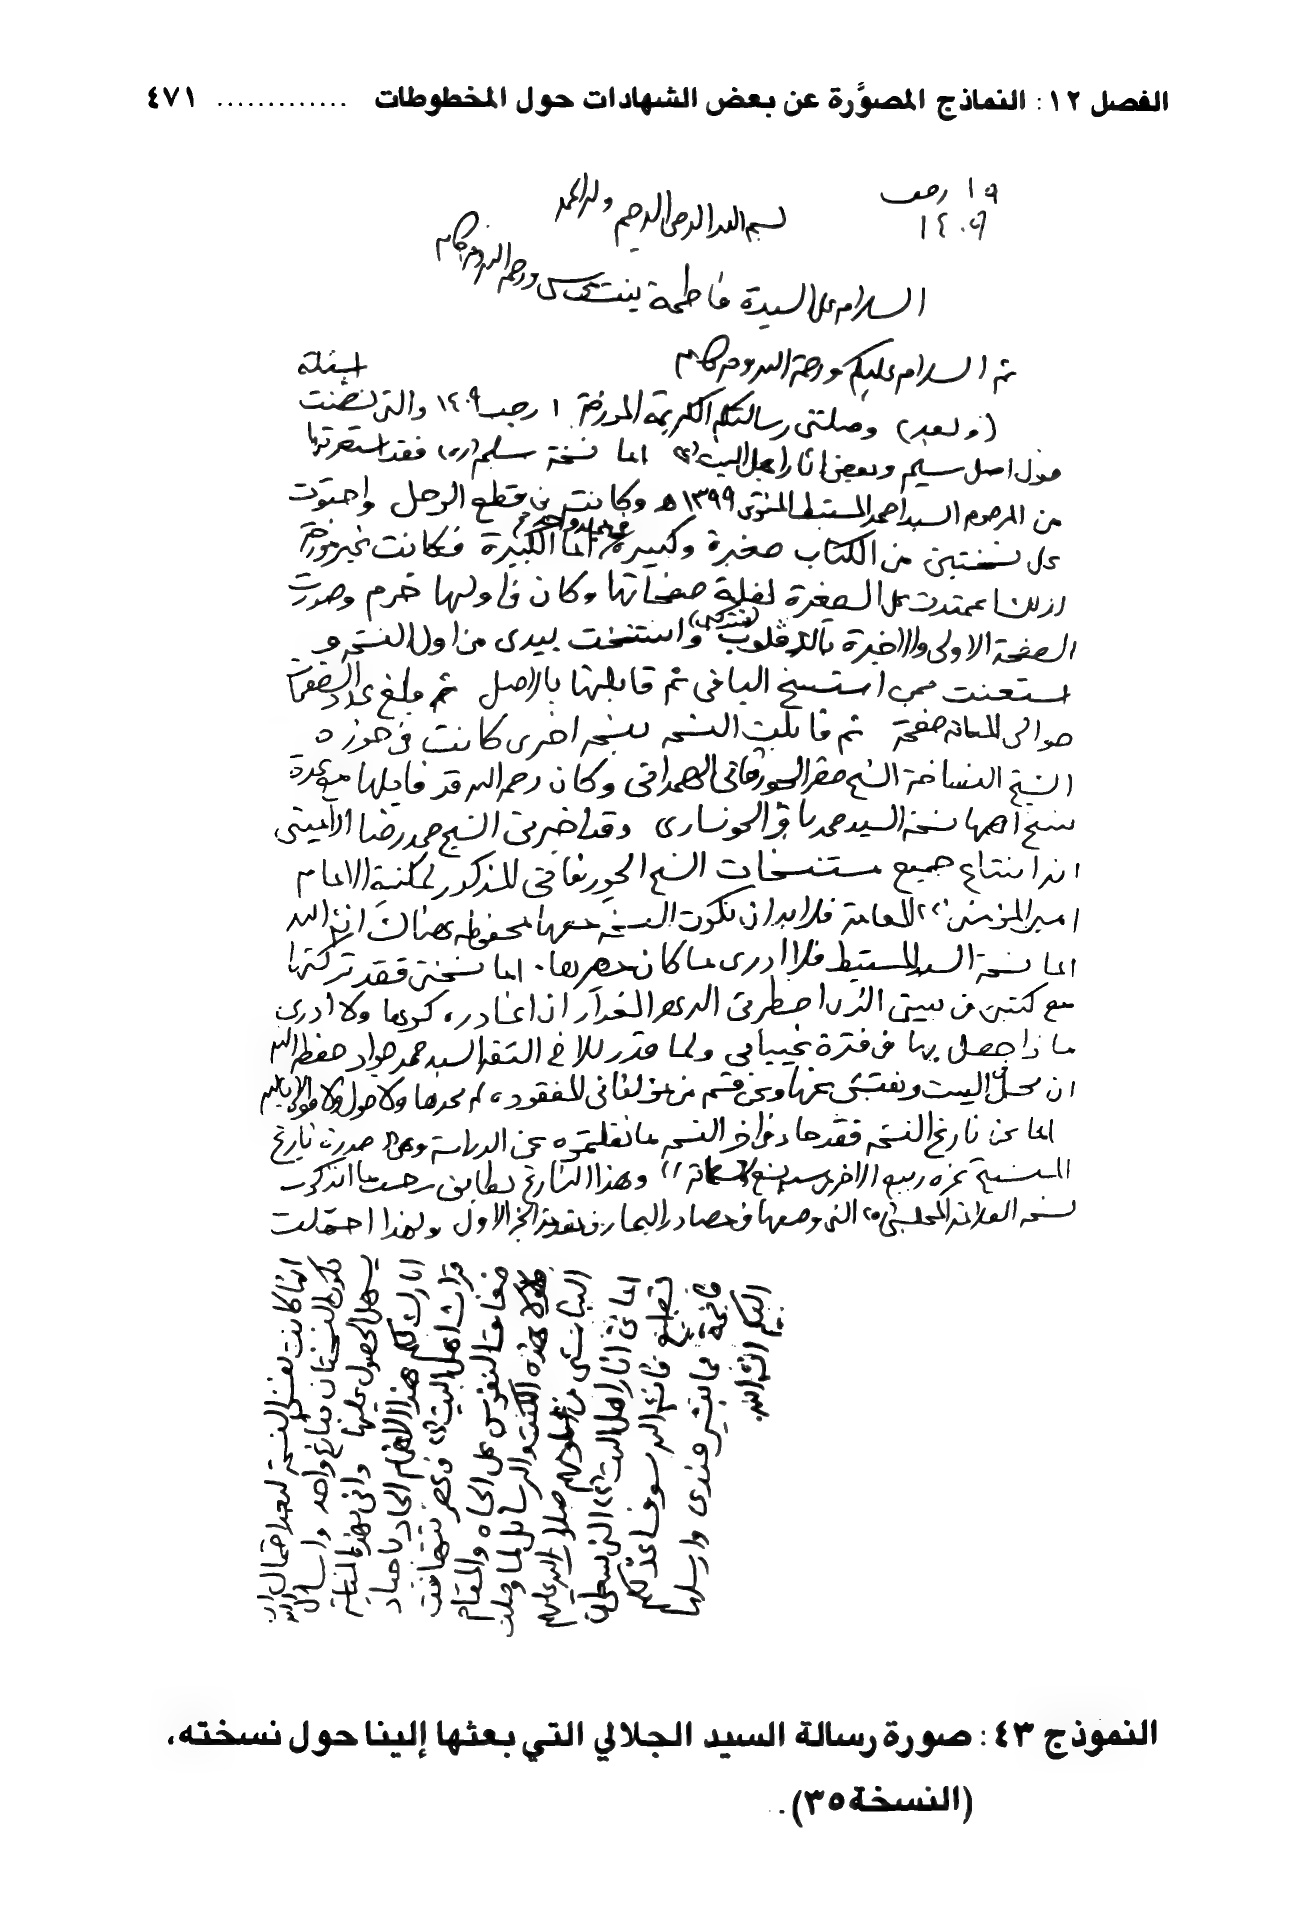 الفصل ١٢: النماذج المصوَّرة عن بعض الشهادات حول المخطوطات ............. ٤٧١
١٩ رجب
١٤٠٩
بسم الله الرحمن الرحيم وله الحمد
السلام على السيدة فاطمة بنت
ثم السلام عليكم ورحمة الله وبركاته
(وبعد) وصلتني رسالتكم الكريمة المؤرخة ١ رجب ١٤٠٩ والتي تضمنت اسئلة
حول اصل سليم وبعض اثار اهل البيت (ع) اما نسخة سليم (ره) فقد استعرتها
من المرحوم السيد احمد المستنبط المتوفى ١٣٩٩ هـ وكانت في قطع الرحل واحتوت
على نسختين من الكتاب صغيرة وكبيرة في مجلد واحد اما الكبيرة فكانت غير مؤرخة
اعتمدت على الصغيرة لقلة صفحاتها وكان في اولها خرم وصورت
الصفحة الاولى والاخيرة واستنسخت بيدي من اول النسخة و
استعنت بمن استنسخ الباقي ثم قابلتها بالاصل ثم وبلغ عدد الصفحات
حوالي صفحة ثم قابلت النسخة بنسخة اخرى كانت في حوزة
الشيخ النساخة الشيخ الجورقاني الهمداني وكان رحمه الله قد قابلها مع عدة
نسخ اهمها نسخة السيد محمد باقر الخونساري وقد اخبرني الشيخ محمد رضا الأميني
انه ابتاع جميع مستنسخات الشيخ الجورقاني المذكور لمكتبة الامام
امير المؤمنين (ع) العامة فلا بد ان تكون النسخة معها محفوظة هناك انشاء الله
اما نسخة السيد المستنبط فلا ادري ما كان مصيرها. اما نسختي فقد تركتها
مع كتبي في بيتي الذي اضطرني الدهر الغدار ان اغادره كرها ولا ادري
ماذا حصل بها في فترة غيابي ولما قدر للاخ الثقة السيد محمد جواد حفظه الله
ان يحتل البيت ويفتش عنها وعن قسم من مؤلفاتي المفقودة، لم يجدها ولا حول ولا قوة الا بالله
اما عن تاريخ النسخة فقد جاء في اخر النسخة ما نقلتموه عن الدراسة وهي صدرت تاريخ
النسخ غرة ربيع الاخر وهذا التاريخ يطابق
نسخة العلامة المجلسي (ره) التي وصفها في مصادر البحار في مقدمة الجزء الاول ولهذا احتملت
انها كانت نفس النسخة
تكون النسختان بتاريخ واحد واسأل الله
يسهل الحصول عليها واني بهذه المناسبة
ابارك لكم هذا الاهتمام الجاد باحياء
تراث اهل البيت (ع) في عصر تتهافت
النفوس على الجاه والمقام
هذه الكتب والرسائل لما وصلت
صلوات الله عليهم
اما عن اثار اهل البيت (ع) التي
تطبع فانه الله سوف
فاتحة مما ينشر عندي وارسلها
اليكم انشاء الله
النموذج ٤٣: صورة رسالة السيد الجلالي التي بعثها إلينا حول نسخته،
(النسخة ٣٥).